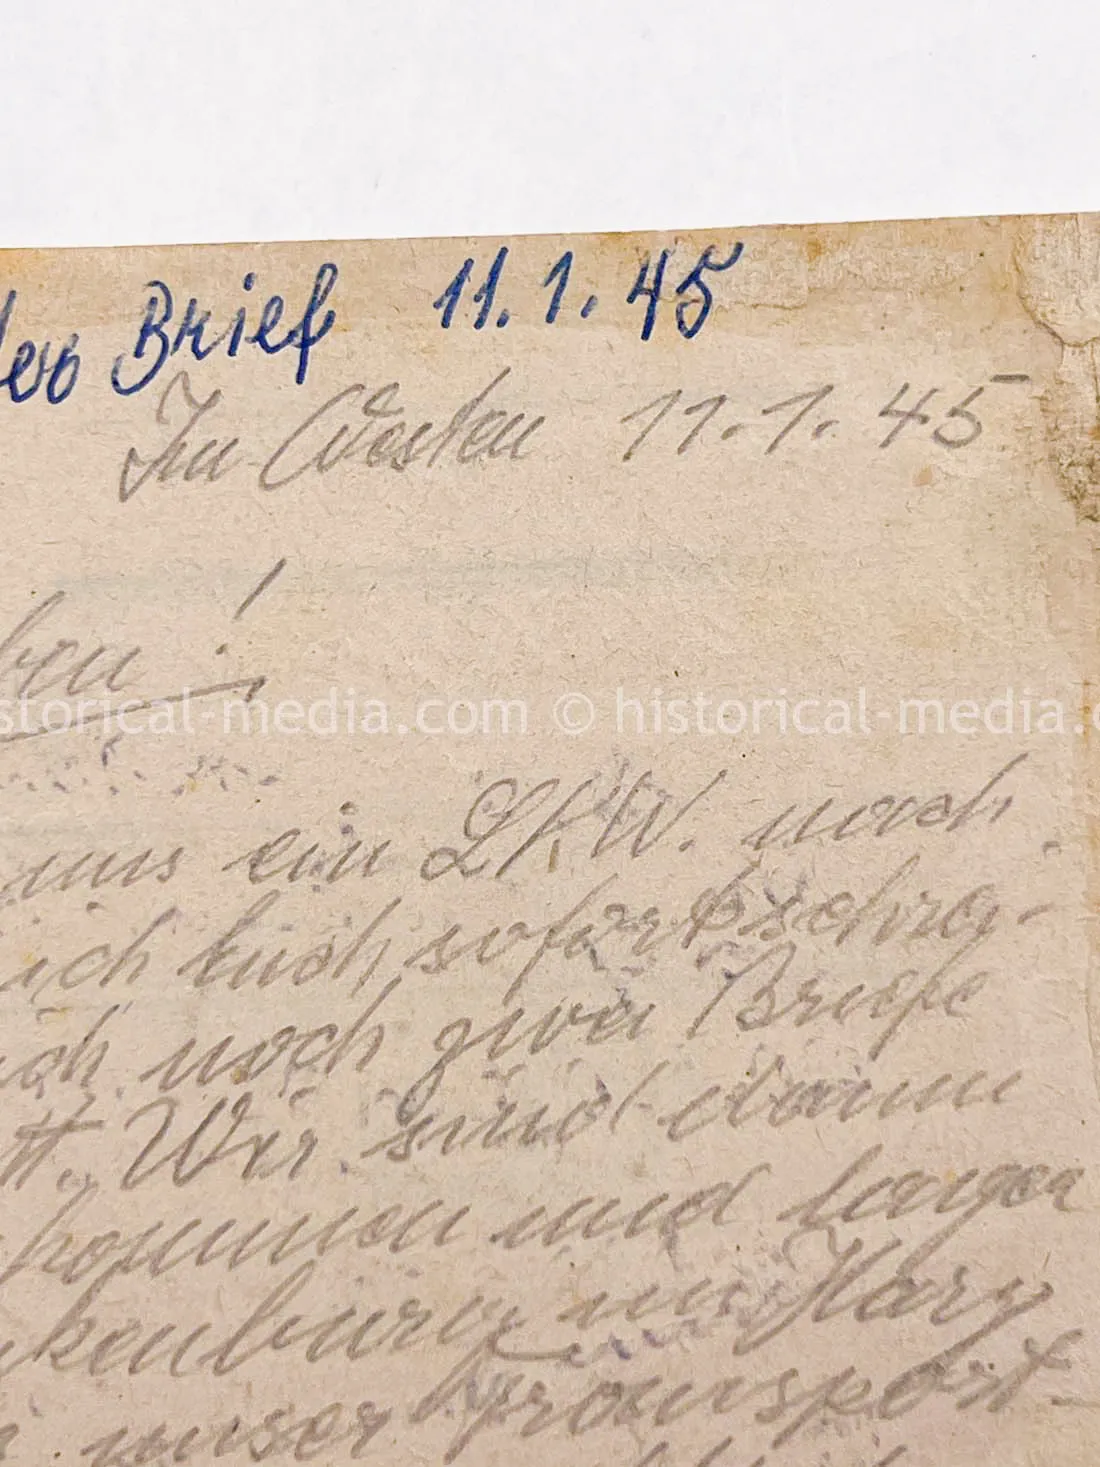 Brief 11.1.45
Im Westen 11.1.45
ben!
storical-media.com © historical-media.c
uns ein LKW. noch
ich Euch sofort schrei-
ich noch zwei Briefe
tt. Wir sind dann
kommen und lagen
kenburg im Harz
unser Transport